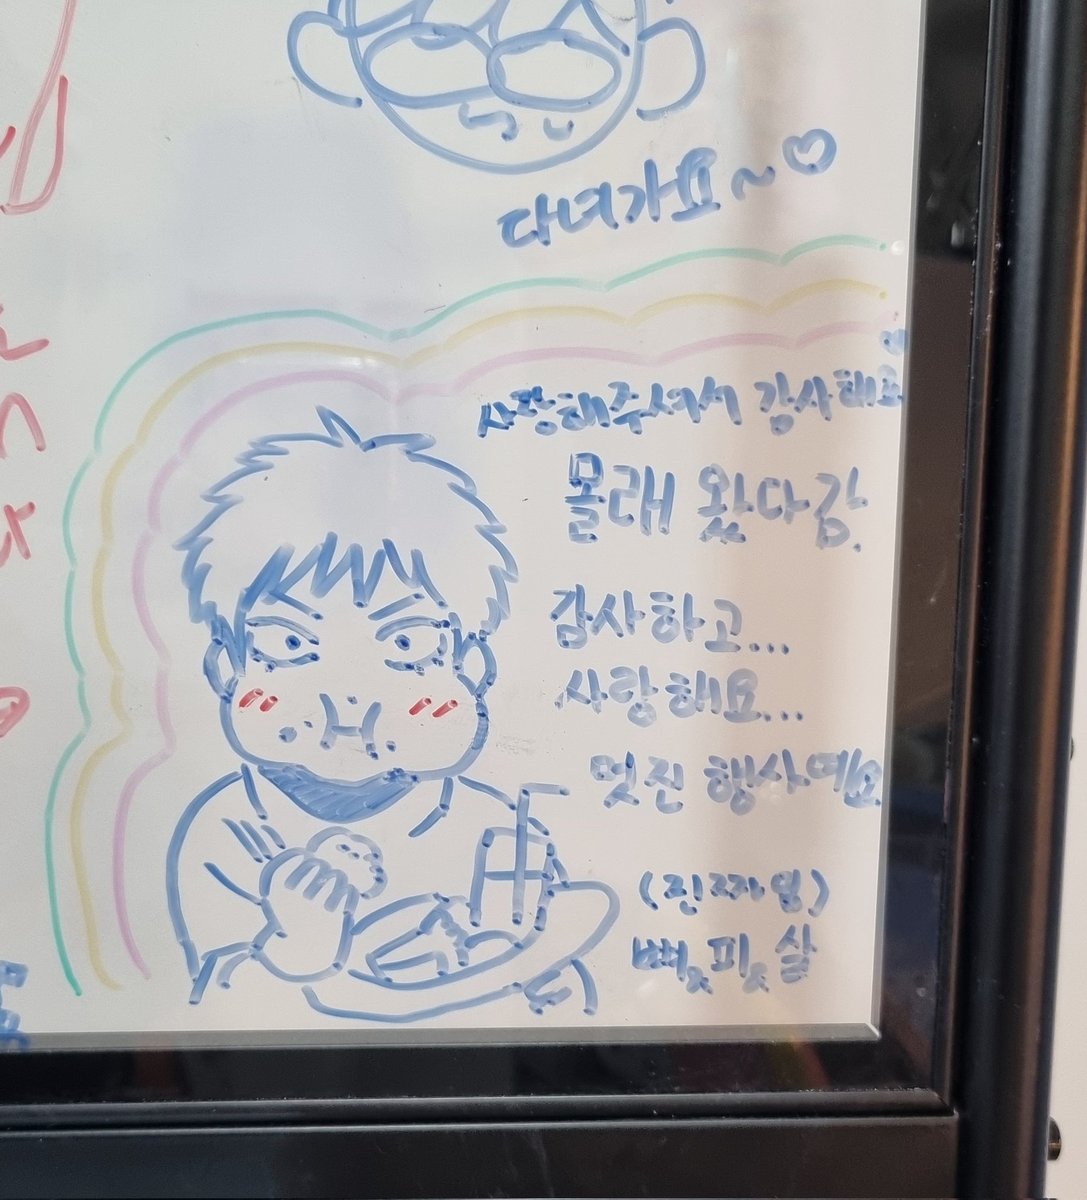 다녀가요~♡
사랑해주셔서 감사해요
몰래 왔다감.
감사하고...
사랑해요...
멋진 행사예요
(진짜임)
뼈x피x살